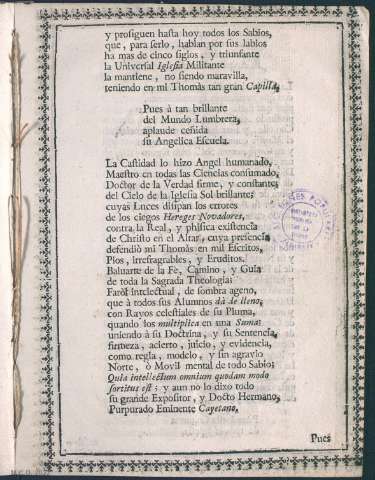 y prosiguen hasta hoy todos los Sabios,
que, para serlo, hablan por sus labios
ha mas de cinco siglos, y triunfante
la Universal Iglesia Militante
la mantiene, no siendo maravilla,
teniendo en mi Thomàs tan gran Capilla,
Pues à tan brillante
del Mundo Lumbrera,
aplaude ceñida
su Angelica Escuela.
La Castidad lo hizo Angel humanado,
Maestro en todas las Ciencias consumado,
Doctor de la Verdad firme, y constante,
del Cielo de la Iglesia Sol brillante;
cuyas Luces disipan los errores
de los ciegos Hereges Novadores,
contra la Real, y phisica existencia
de Christo en el Altar, cuya presencia
defendiò mi Thomàs en mil Escritos,
Pios, irrefragrables, y Eruditos.
Baluarte de la Fe, Camino, y Guia
de toda la Sagrada Theologia:
Faròl intelectual, de sombra ageno,
que à todos sus Alumnos dà de lleno,
con Rayos celestiales de su Pluma,
quando los multiplica en una Suma:
uniendo à su Doctrina, y su Sentencia,
firmeza, acierto, juicio, y evidencia,
como regla, modelo, y sin agravio
Norte, ò Movil mental de todo Sabio;
Quia intellectum omnium quodam modo
sortitus est; y aun no lo dixo todo
su grande Expositor, y Docto Hermano,
Purpurado Eminente Cayetano,
Pues